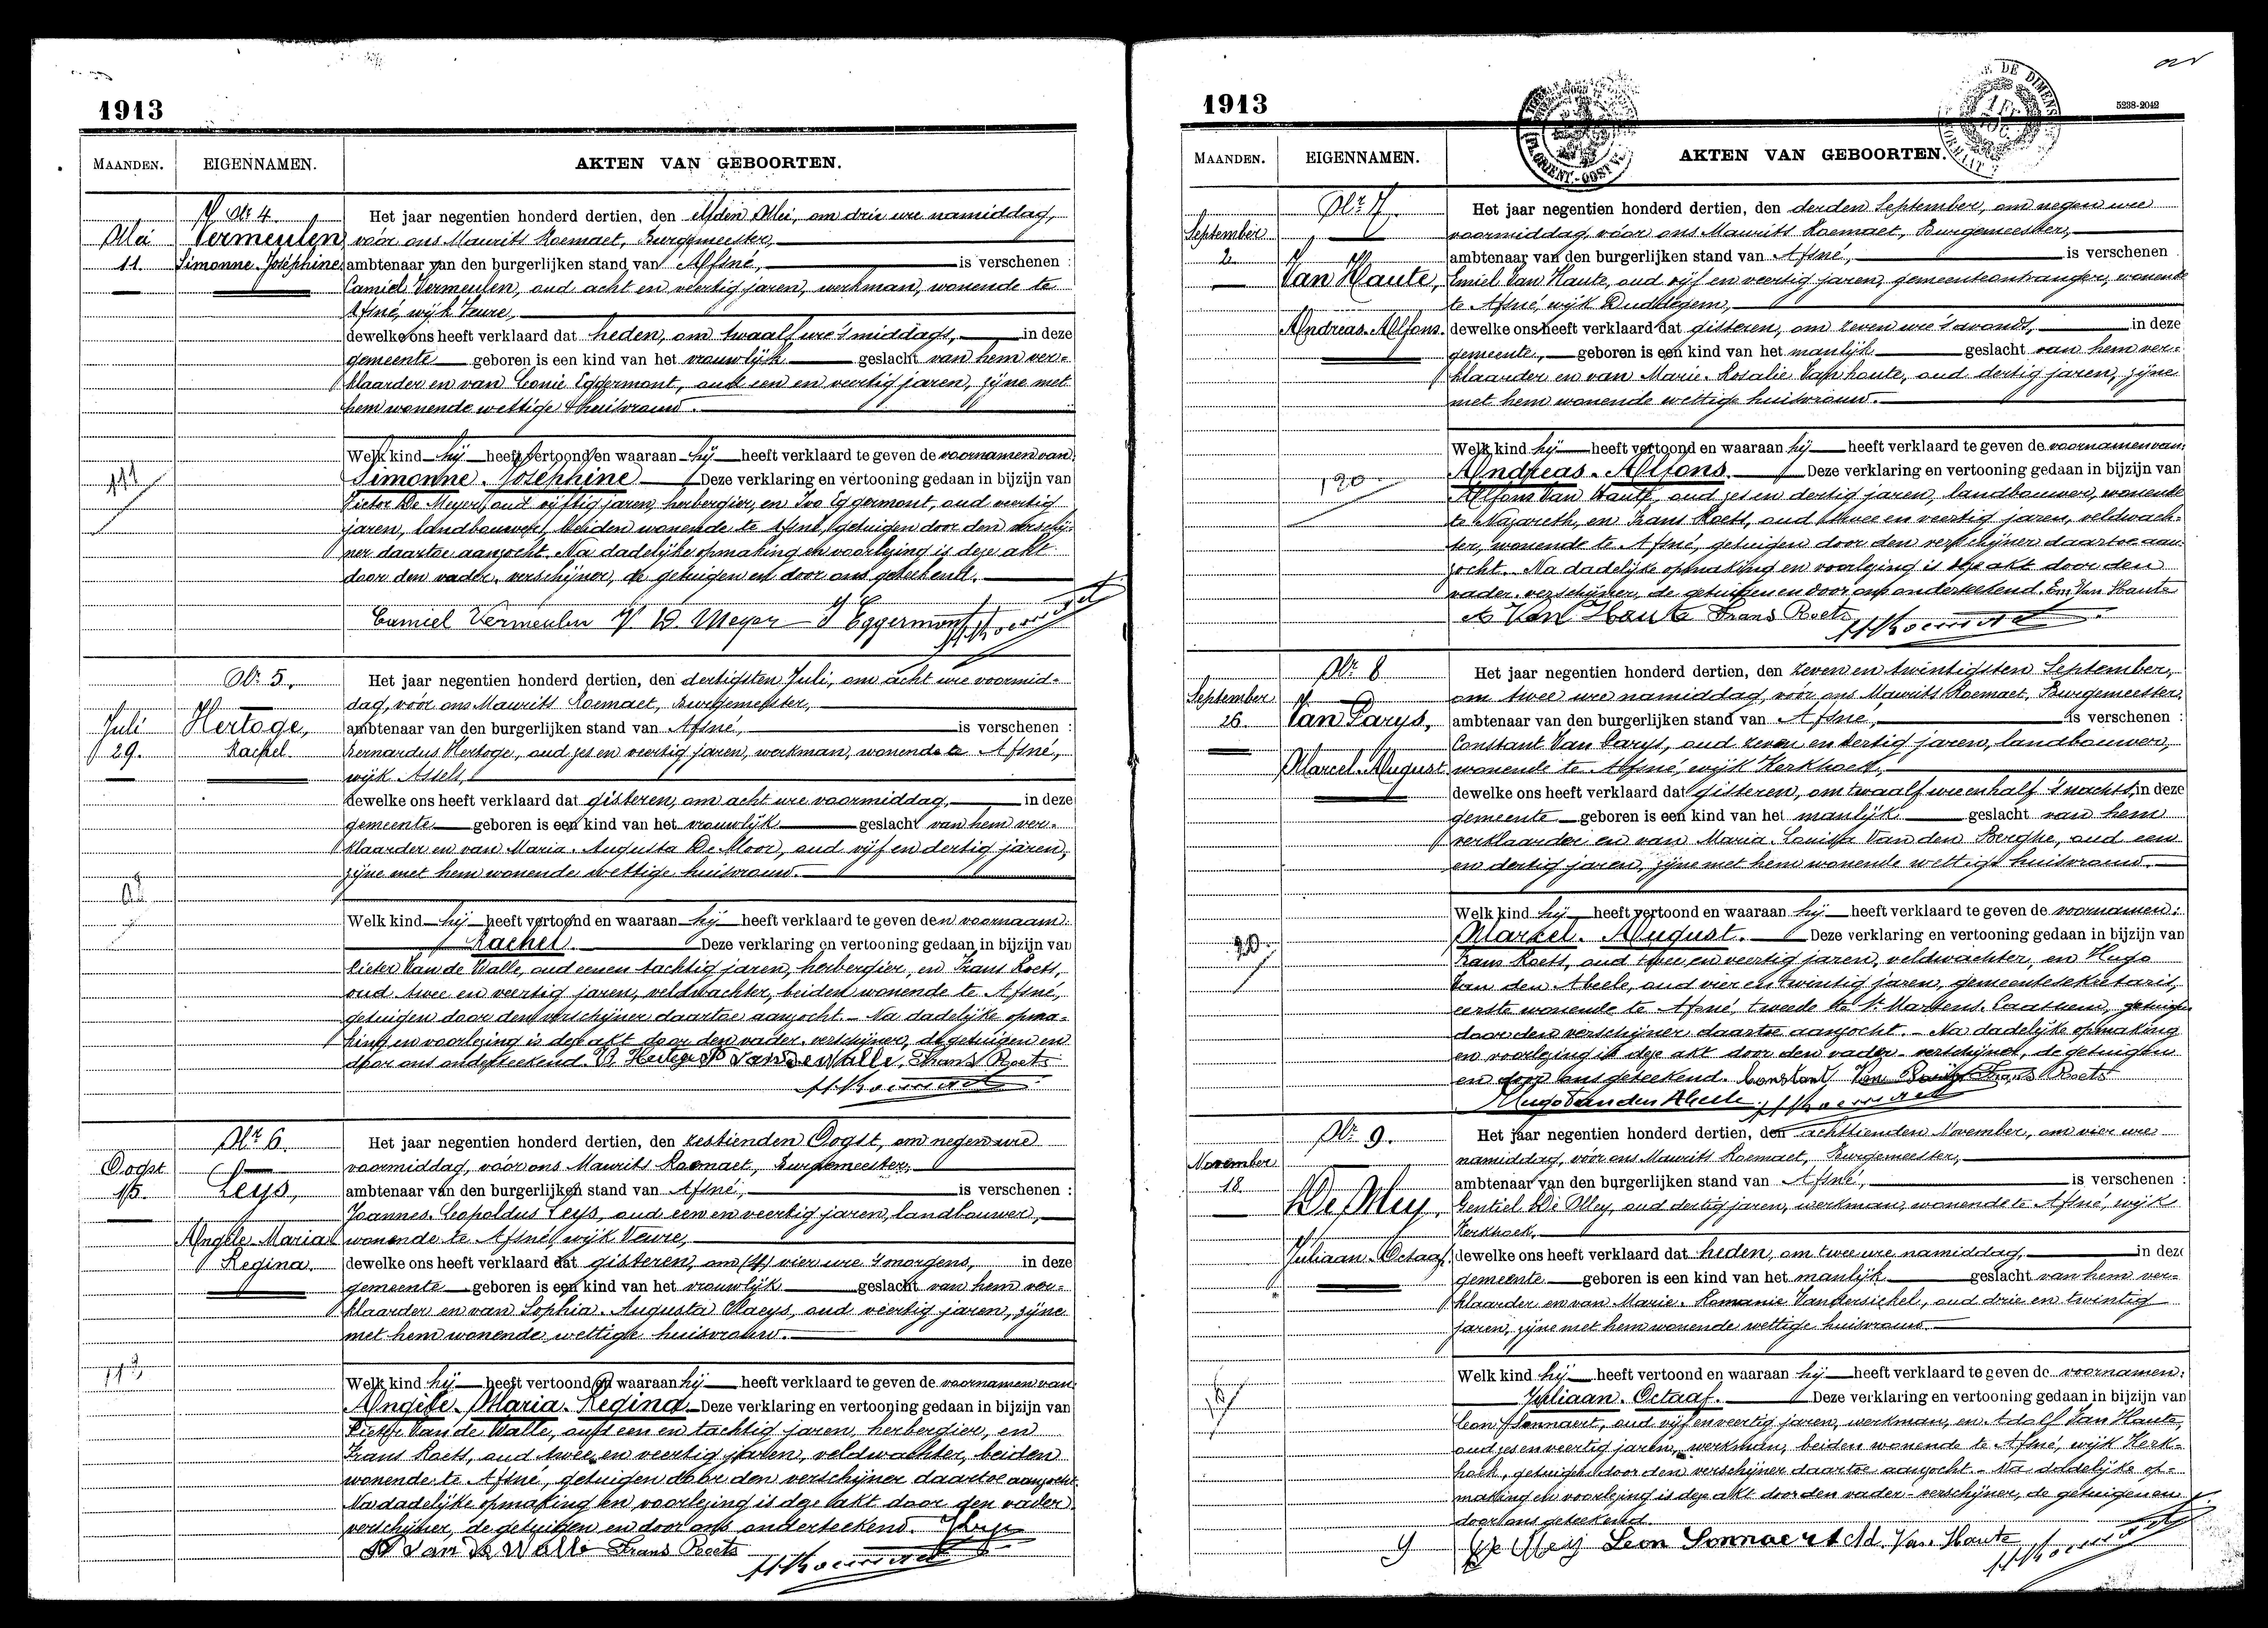 1913
MAANDEN. EIGENNAMEN. AKTEN VAN GEBOORTEN.
Nr 4. Het jaar negentien honderd dertien, den elfden Mei, om drie ure namiddag,
Mei Vermeulen vóór ons Maurits Roemaet, Burgemeester,
11. Simonne-Joséphine ambtenaar van den burgerlijken stand van Afsné, is verschenen :
Camiel Vermeulen, oud acht en veertig jaren, werkman, wonende te
Afsné, wijk Veure,
dewelke ons heeft verklaard dat heden, om twaalf ure 's middags, in deze
gemeente geboren is een kind van het vrouwlijk geslacht van hem ver-
klaarder en van Leonie Eggermont, oud een en veertig jaren, zijne met
hem wonende wettige huisvrouw.
Welk kind hij heeft vertoond en waaraan hij heeft verklaard te geven de voornamen van:
111 Simonne-Joséphine Deze verklaring en vertooning gedaan in bijzijn van
Victor De Meyer, oud vijftig jaren, herbergier, en Ivo Eggermont, oud veertig
jaren, landbouwer, beiden wonende te Afsné, getuigen door den verschij-
ner daartoe aanzocht. Na dadelijke opmaking en voorlezing is deze akt
door den vader-verschijner, de getuigen en door ons geteekend.
Camiel Vermeulen V. D. Meyer I Eggermont
Nr 5. Het jaar negentien honderd dertien, den dertigsten Juli, om acht ure voormid-
dag, vóór ons Maurits Roemaet, Burgemeester,
Juli Hertoge, ambtenaar van den burgerlijken stand van Afsné, is verschenen :
29. Rachel. Bernardus Hertoge, oud zes en veertig jaren, werkman, wonende te Afsné,
wijk Assels,
dewelke ons heeft verklaard dat gisteren, om acht ure voormiddag, in deze
gemeente geboren is een kind van het vrouwlijk geslacht van hem ver-
klaarder en van Maria-Augusta De Moor, oud vijf en dertig jaren,
zijne met hem wonende wettige huisvrouw.
Welk kind hij heeft vertoond en waaraan hij heeft verklaard te geven den voornaam:
Rachel. Deze verklaring en vertooning gedaan in bijzijn van
Pieter Van de Walle, oud een en tachtig jaren, herbergier, en Frans Roets,
oud twee en veertig jaren, veldwachter, beiden wonende te Afsné,
getuigen door den verschijner daartoe aanzocht. Na dadelijke opma-
king en voorlezing is deze akt door den vader-verschijner, de getuigen en
door ons onderteekend. B. Hertoge P Van De Walle, Frans Roets
Nr 6. Het jaar negentien honderd dertien, den zestienden Oogst, om negen ure
Oogst voormiddag, vóór ons Maurits Roemaet, Burgemeester,
15. Leys, ambtenaar van den burgerlijken stand van Afsné, is verschenen :
Joannes-Leopoldus Leys, oud een en veertig jaren, landbouwer,
Angèle-Maria wonende te Afsné, wijk Veure,
Regina. dewelke ons heeft verklaard dat gisteren, om (4) vier ure 's morgens, in deze
gemeente geboren is een kind van het vrouwlijk geslacht van hem ver-
klaarder en van Sophia-Augusta Claeys, oud veertig jaren, zijne
met hem wonende wettige huisvrouw.
Welk kind hij heeft vertoond en waaraan hij heeft verklaard te geven de voornamen van:
Angèle-Maria-Regina. Deze verklaring en vertooning gedaan in bijzijn van
Pieter Van de Walle, oud een en tachtig jaren, herbergier, en
Frans Roets, oud twee en veertig jaren, veldwachter, beiden
wonende te Afsné, getuigen door den verschijner daartoe aanzocht.
Na dadelijke opmaking en voorlezing is deze akt door den vader
verschijner, de getuigen en door ons onderteekend.
P Van De Walle Frans Roets
1913
5238-2042
MAANDEN. EIGENNAMEN. AKTEN VAN GEBOORTEN.
Nr 7. Het jaar negentien honderd dertien, den derden September, om negen ure
September voormiddag, vóór ons Maurits Roemaet, Burgemeester,
2. ambtenaar van den burgerlijken stand van Afsné, is verschenen
Van Haute, Emiel Van Haute, oud vijf en veertig jaren, gemeenteontvanger, wonende
te Afsné, wijk Duddegem,
Andreas-Alfons. dewelke ons heeft verklaard dat gisteren, om zeven ure 's avonds, in deze
gemeente, geboren is een kind van het manlijk geslacht van hem ver-
klaarder en van Marie-Rosalie Vanhoute, oud dertig jaren, zijne
met hem wonende wettige huisvrouw.
Welk kind hij heeft vertoond en waaraan hij heeft verklaard te geven de voornamen van:
Andreas-Alfons. Deze verklaring en vertooning gedaan in bijzijn van
120 Alfons Van Haute, oud zes en dertig jaren, landbouwer, wonende
te Nazareth, en Frans Roets, oud twee en veertig jaren, veldwach-
ter, wonende te Afsné, getuigen door den verschijner daartoe aan-
zocht. Na dadelijke opmaking en voorlezing is deze akt door den
vader-verschijner, de getuigen en door ons onderteekend. Em. Van Haute
A Van Haute Frans Roets
Nr 8 Het jaar negentien honderd dertien, den zeven en twintigsten September,
September om twee ure namiddag, vóór ons Maurits Roemaet, Burgemeester,
26. Van Parys, ambtenaar van den burgerlijken stand van Afsné, is verschenen :
Constant Van Parys, oud zeven en dertig jaren, landbouwer,
Marcel-August wonende te Afsné, wijk Kerkhoek,
dewelke ons heeft verklaard dat gisteren, om twaalf ure en half 's nachts, in deze
gemeente geboren is een kind van het manlijk geslacht van hem
verklaarder en van Maria-Louisa Van den Berghe, oud een
en dertig jaren, zijne met hem wonende wettige huisvrouw.
Welk kind hij heeft vertoond en waaraan hij heeft verklaard te geven de voornamen:
Marcel-August. Deze verklaring en vertooning gedaan in bijzijn van
Frans Roets, oud twee en veertig jaren, veldwachter, en Hugo
Van den Abeele, oud vier en twintig jaren, gemeentesekretaris,
eerste wonende te Afsné, tweede te St Martens-Laathem, getuigen
door den verschijner daartoe aanzocht. Na dadelijke opmaking
en voorlezing is deze akt door den vader-verschijner, de getuigen
en door ons geteekend. Constant Van Parijs Frans Roets
Hugo Van den Abeele
Nr 9. Het jaar negentien honderd dertien, den achttienden November, om vier ure
November namiddag, vóór ons Maurits Roemaet, Burgemeester,
18. ambtenaar van den burgerlijken stand van Afsné, is verschenen :
De Mey, Gentiel De Mey, oud dertig jaren, werkman, wonende te Afsné, wijk
Kerkhoek,
Juliaan-Octaaf. dewelke ons heeft verklaard dat heden, om twee ure namiddag, in deze
gemeente geboren is een kind van het manlijk geslacht van hem ver-
klaarder en van Marie-Romanie Vandersichel, oud drie en twintig
jaren, zijne met hem wonende wettige huisvrouw.
Welk kind hij heeft vertoond en waaraan hij heeft verklaard te geven de voornamen:
Juliaan-Octaaf. Deze verklaring en vertooning gedaan in bijzijn van
Leon Sonnaert, oud vijf en veertig jaren, werkman, en Adolf Van Haute,
oud zes en veertig jaren, werkman, beiden wonende te Afsné, wijk Kerk-
hoek, getuigen door den verschijner daartoe aanzocht. Na dadelijke op-
making en voorlezing is deze akt door den vader-verschijner, de getuigen en
door ons geteekend.
De Meij Leon Sonnaert Ad. Van Haute